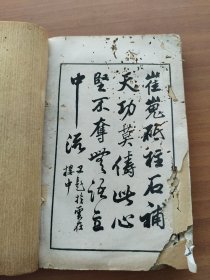 崔嵬砥柱石補
天功莫儔此心
堅不奪無語立
中流